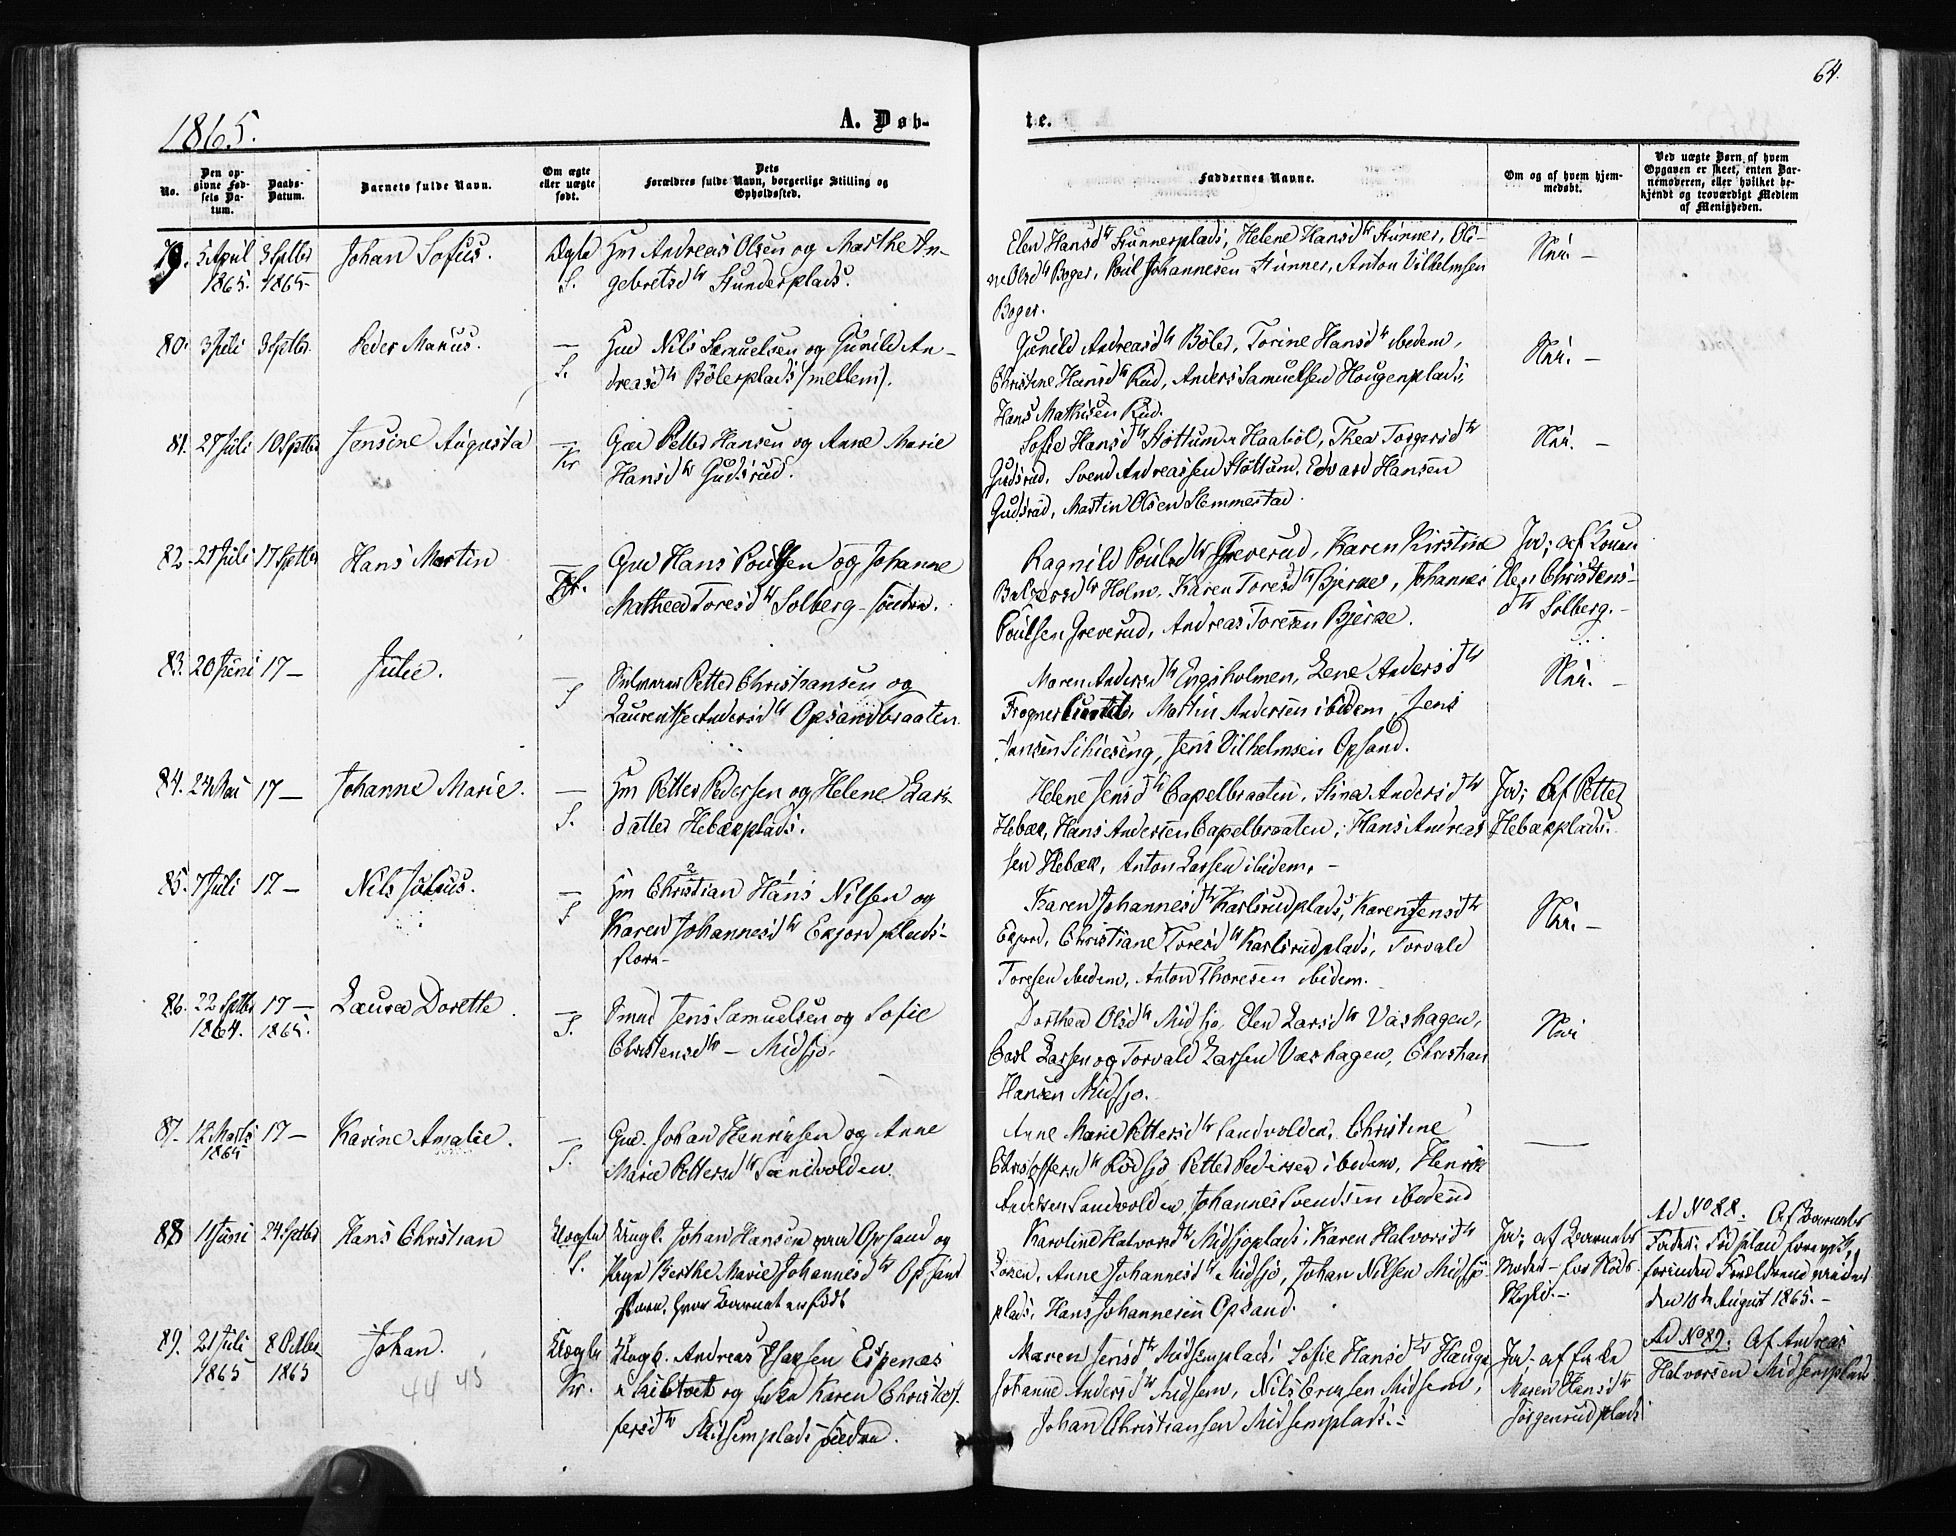 64.
1865.
A. Døb-
te.
No.
Den op-
givne Fød-
sels Da-
tum.
Daabs-
Datum.
Barnets fulde Navn.
Om ægte
eller uægte
født.
Dets
Forældres fulde Navn, borgerlige Stilling og
Opholdssted.
Faddernes Navne.
Om og af hvem hjem-
medøbt.
Ved uægte Børn af hvem
Opgaven er skeet, enten Bar-
nemoderen, eller hvilket be-
kjendt og troværdigt Medlem
af Menigheden.
79. 5 April 3 Septbr Johan Sofus. Ægte Hm Andreas Olsen og Marthe In-
1865. 1865 S. gebretsdtr Stunderplads.
Elen Hansdtr Stunnerplads, Helene Hansdtr Stunner, Oli-
ne Olsdtr Boger, Poul Johannesen Stunner, Anton Vilhelmsen
Boger.
Nei. –
80. 3 Juli 3 Septbr. Peder Marius. — Hm Nils Samuelsen og Gunild An-
S. dreasdtr Bölerplads (mellem).
Gunild Andreasdtr Böler, Torine Hansdtr ibidem,
Christine Hansdtr Rud, Anders Samuelsen Hougenplads,
Hans Mathisen Rud.
Nei. –
81. 27 Juli 10 Septbr Jensine Augusta — Gaar Petter Hansen og Anne Marie
Kr Hansdtr Gudsrud.
Sofie Hansdtr Støttum Haaböl, Thea Torgersdtr
Gudsrud, Svend Andreassen Støttum, Edvard Hansen
Gudsrud, Martin Olsen Stemmestad.
Nei. –
82. 21 Juli 17 Septbr Hans Martin — Gm Hans Poulsen og Johanne
Kr. Mathea Toresdtr Solberg söndre.
Ragnild Poulsdtr Greverud, Karen Kirstine
Balzersdtr Holm, Karen Toresdtr Bjerke, Johannes
Poulsen Greverud, Andreas Toresen Bjerke.
Ja; af Konen
Elen Christens-
dtr Solberg. –
83. 20 Juni 17 — Julie. — Petter Christiansen og
S Laurentse Andersdtr Opsandbraaten.
Maren Andersdtr Engsholmen, Lene Andersdtr
Frogner, Martin Andersen ibidem, Jens
Jansen, Jens Vilhelmsen Opsand.
Nei. –
84. 24 Mai 17 — Johanne Marie. — Hm Petter Pedersen og Helene Lars-
S. datter Hebækplads.
Helene Jensdtr Capelbraaten, Stina Andersdtr
Hebæk, Hans Andersen Capelbraaten, Hans Andreas
sen Hebæk, Anton Larsen ibidem. –
Ja; Af Petter
Hebækplads.
85. 7 Juli 17 — Nils Julius. — Hm Christian Hans Nilsen og
S Karen Johannesdtr Ekjord plads-
store-
Karen Johannesdtr Karlsrudplads, Karen Jensdtr
Ekjord, Christiane Toresdtr Karlsrudplads, Torvald
Toresen ibidem, Anton Thoresen ibidem.
Nei. –
86. 22 Septbr 17 — Laura Dorette. — Smed Jens Samuelsen og Sofie
1864. 1865. S. Christensdtr – Midsjø.
Dorthea Olsdtr Midsjø, Elen Larsdtr Vashagen,
Carl Larsen og Torvald Larsen Vashagen, Christian
Hansen Midsjø.
Nei
87. 12 Marts 17 — Karine Amalie. — Gm. Johan Henriksen og Anne
1865 S. Marie Pettersdtr Sandvolden.
Anne Marie Pettersdtr Sandvolden, Christine
Christoffersd Rødsjø, Petter Pedersen ibidem, Henrik
Andersen Sandvolden, Johannes Svendsen ibidem
—
88 11 Juni 24 Septbr Hans Christian Uægte Ungk. Johan Hansen Opsand og
S. Pige Berthe Marie Johannesdtr Opsand
store, hvor Barnet er født
Karoline Halvorsdtr Midsjøplads, Karen Halvorsdtr
Anne Johannesdtr Midsjø, Johan Nilsen Midsjø
plads, Hans Johannesen Opsand.
Ja; af Barnets
Moder –
Ad No 88. Af Barnets
Fader;
den 10de August 1865. –
89. 21 Juli 8 Octbr Johan. Uægte Ungk. Andreas Isaksen Espenæs
1865 1865 Kr. og Enke Karen Christof-
fersdtr Midsemplads søndre.
44 45
Maren Jensdtr Midsemplads, Sofie Hansdtr Hauge
Johanne Andersdtr Midsem, Nils Ericksen Midsem,
Johan Christiansen Midsemplads. –
Ja – af Enke
Maren Hansdtr
Jörgenrudplads
Ad No 89. Af Andreas
Halvorsen Midsemplads